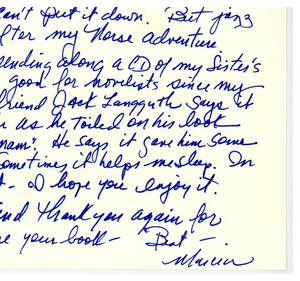 an't put it down. But jazz
fter my Norse adventure
pending along a CD of my Sister's
good for novelists since my
friend Jack Langguth says it
as he toiled on his book
nam". He says it gave him some
Sometimes it helps me sleep. In
- I hope you enjoy it.
nd thank you again for
re your book - Best -